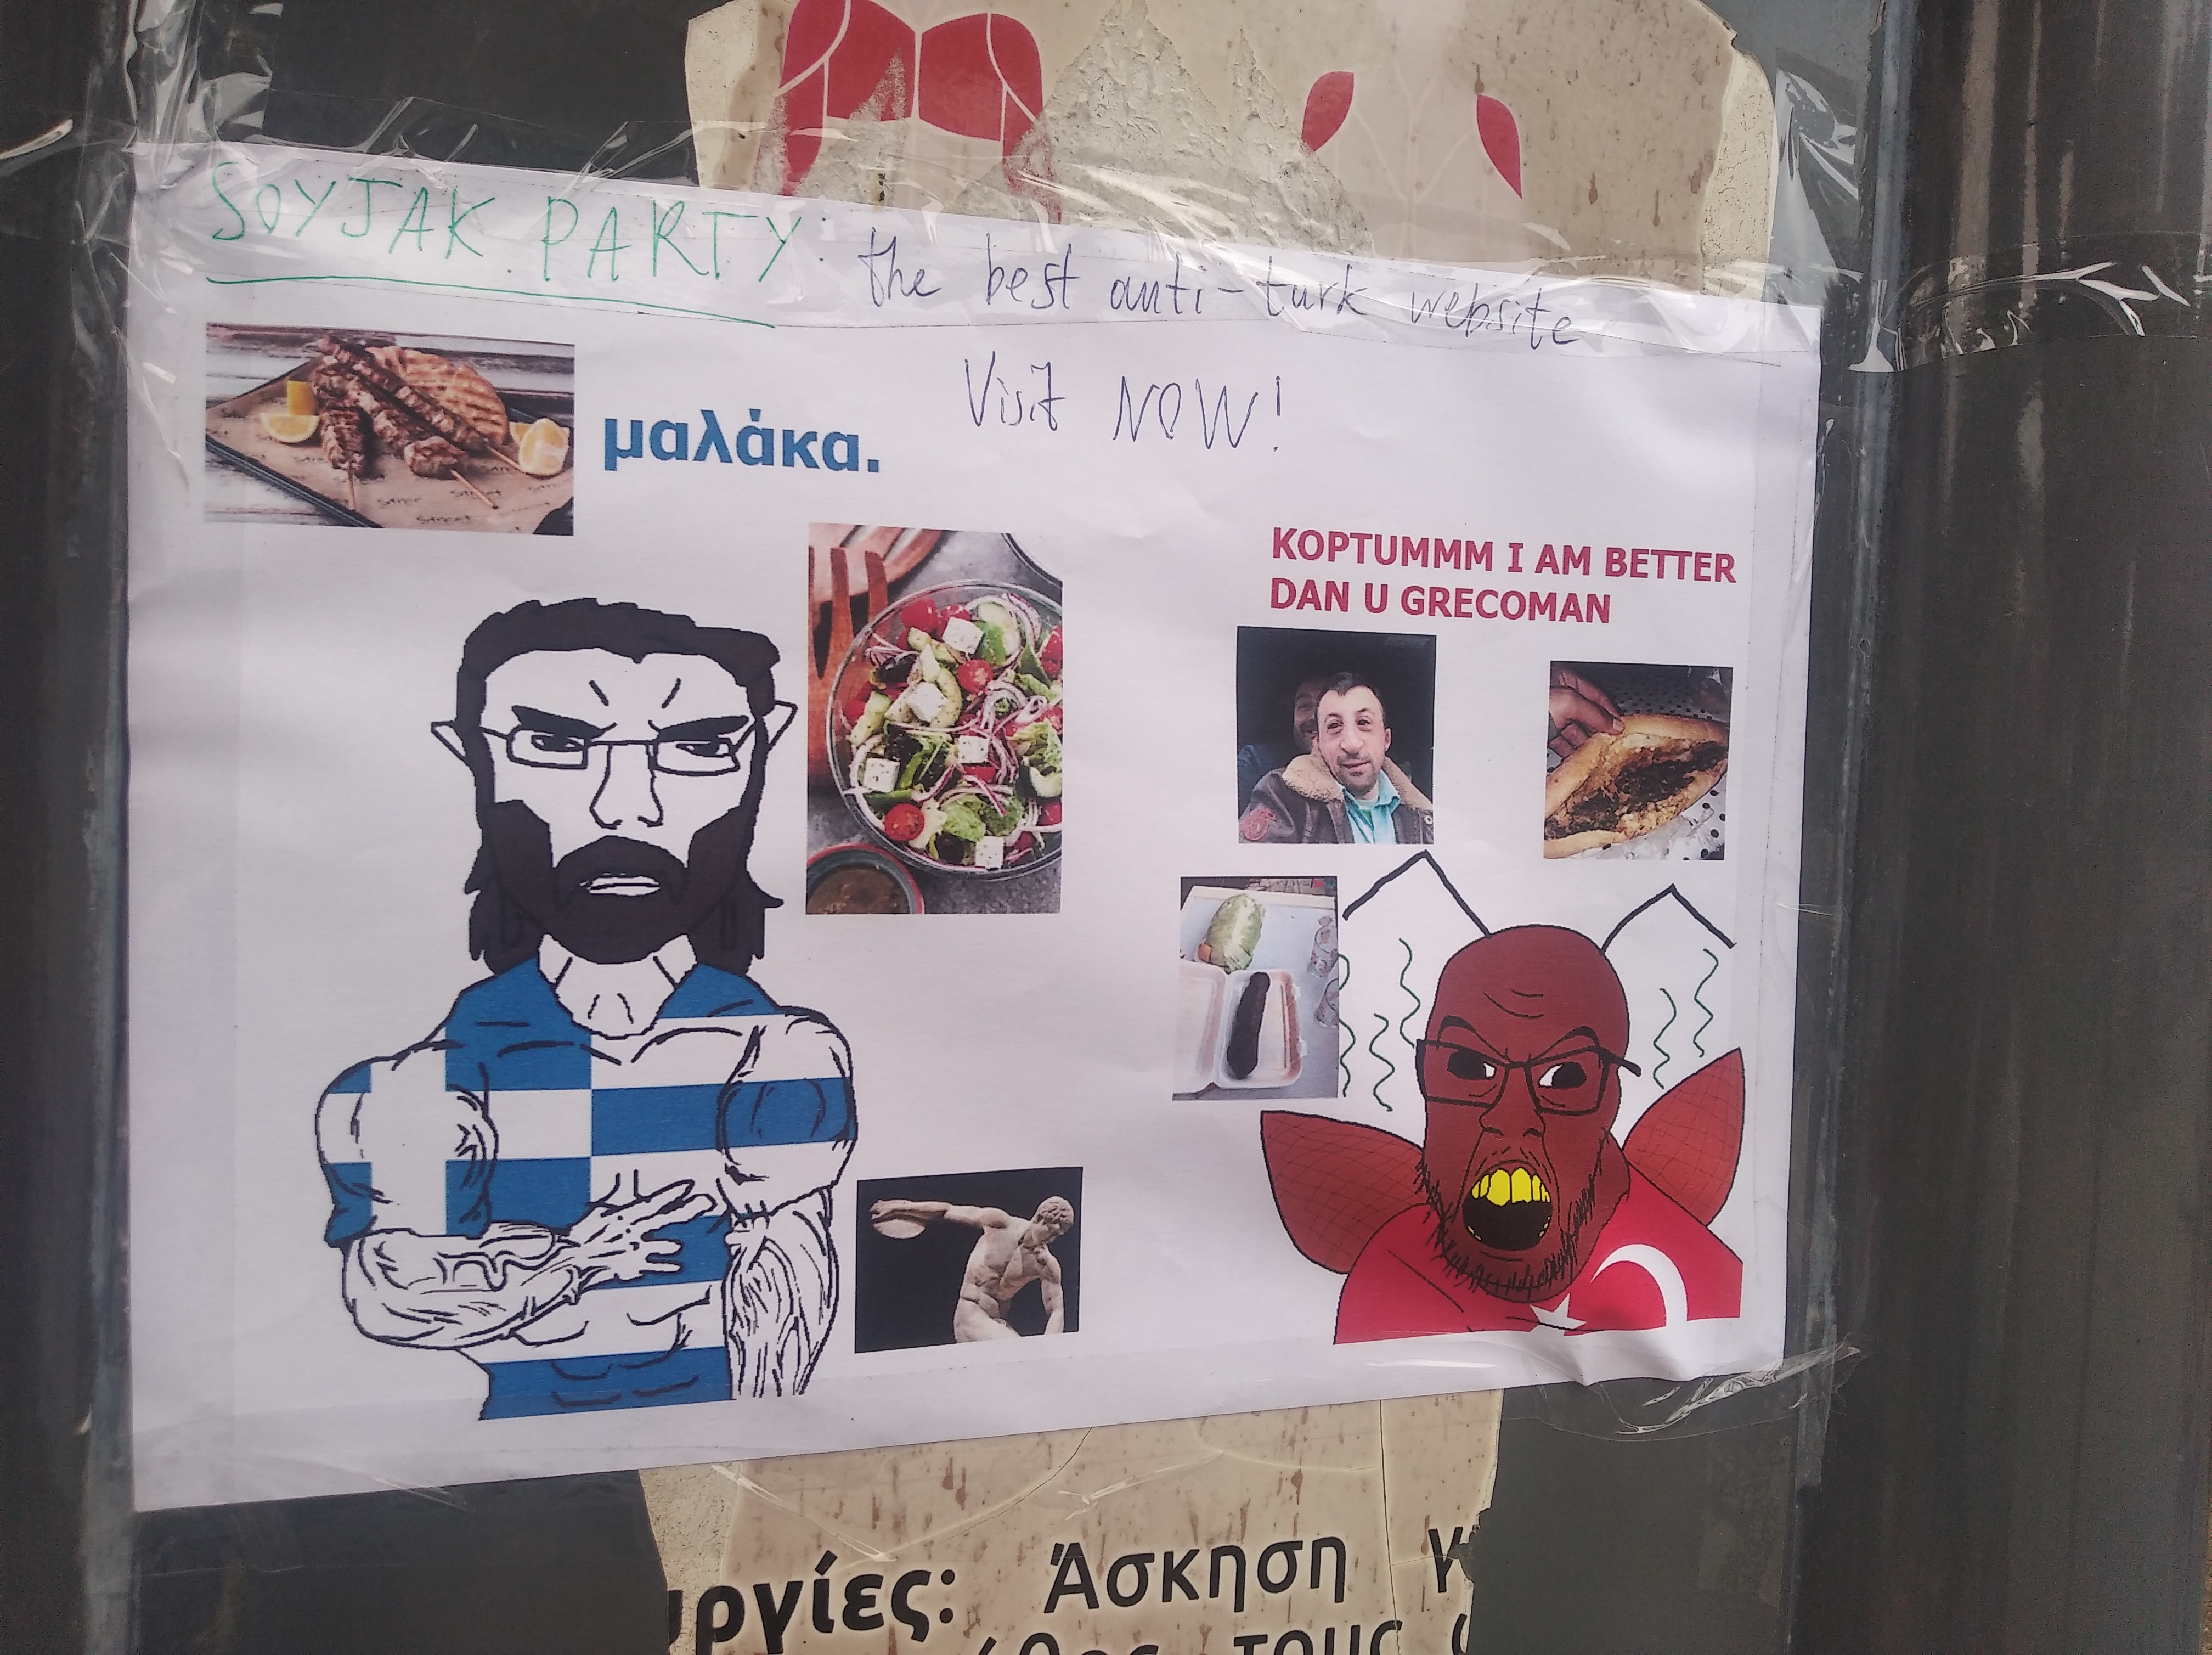 SOYJAK.PARTY: the best anti-turk website
Visit NOW!
μαλάκα.
KOPTUMMM I AM BETTER
DAN U GRECOMAN
υργίες: Άσκηση γ
τους